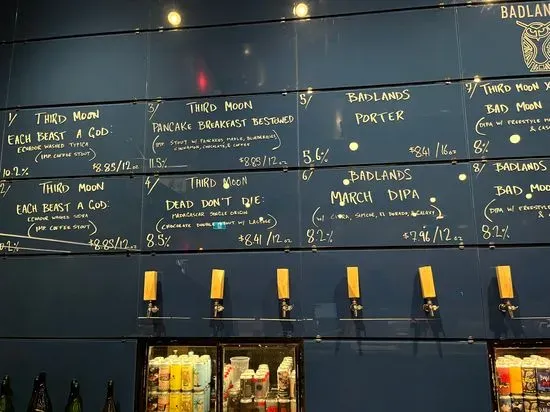 BADLAN
1/ THIRD MOON
EACH BEAST A GOD:
ECUADOR WASHED TYPICA
(IMP. COFFEE STOUT)
10.2% $8.85/12oz
2/ THIRD MOON
EACH BEAST A GOD:
ECUADOR WASHED SIDRA
(IMP. COFFEE STOUT)
0.2% $8.85/12oz
3/ THIRD MOON
PANCAKE BREAKFAST BESTOWED
(IMP. STOUT W/ PANCAKES, MAPLE, BLUEBERRIES,
CINNAMON, CHOCOLATE, & COFFEE)
11.5% $8.85/12oz
4/ THIRD MOON
DEAD DON'T DIE:
MADAGASCAR SINGLE ORIGIN
(CHOCOLATE DOUBLE STOUT W/ LACTOSE)
8.5% $8.41/12oz
5/ BADLANDS
PORTER
5.6% $8.41/16oz
6/ BADLANDS
MARCH DIPA
(W/ CITRA, SIMCOE, EL DORADO, GALAXY)
8.2% $7.96/12oz
7/ THIRD MOON X
BAD MOON
(DIPA W/ FREESTYLE M
& CAS
8%
8/ BADLANDS
BAD MOO
(DIPA W/ FREESTYLE
&
8.2%